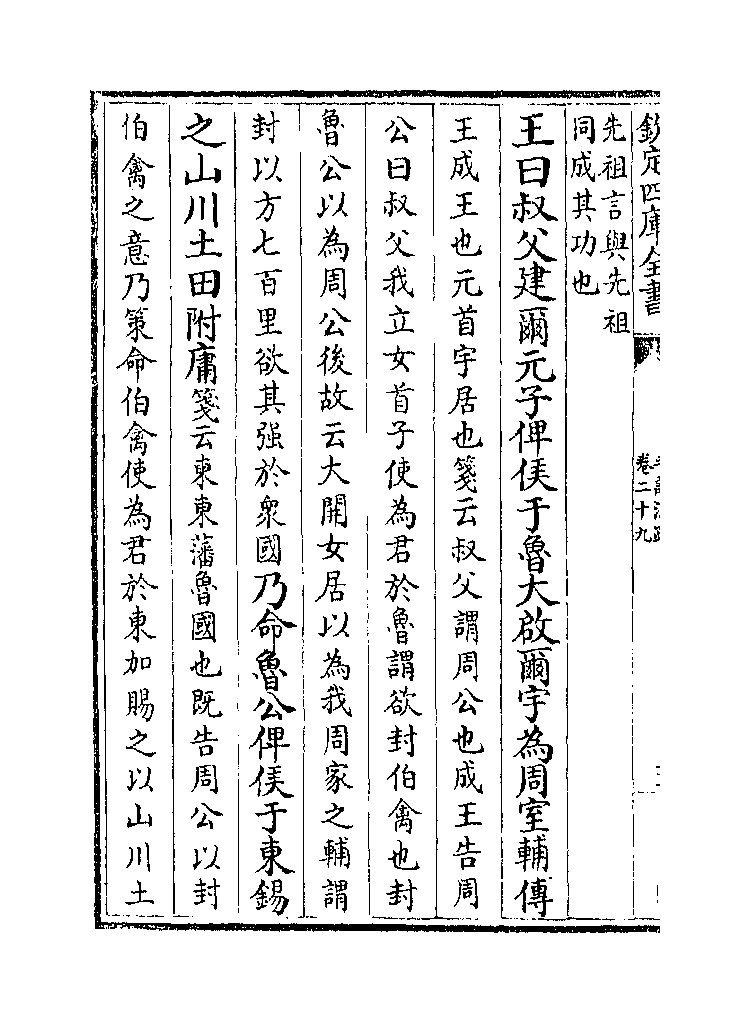 欽定四庫全書
卷二十九
先祖言與先祖
同成其功也
王曰叔父建爾元子俾侯于魯大啟爾宇為周室輔傳
王成王也元首宇居也箋云叔父謂周公也成王告周
公曰叔父我立女首子使為君於魯謂欲封伯禽也封
魯公以為周公後故云大開女居以為我周家之輔謂
封以方七百里欲其强於衆國乃命魯公俾侯于東錫
之山川土田附庸箋云東東藩魯國也既告周公以封
伯禽之意乃策命伯禽使為君於東加賜之以山川土